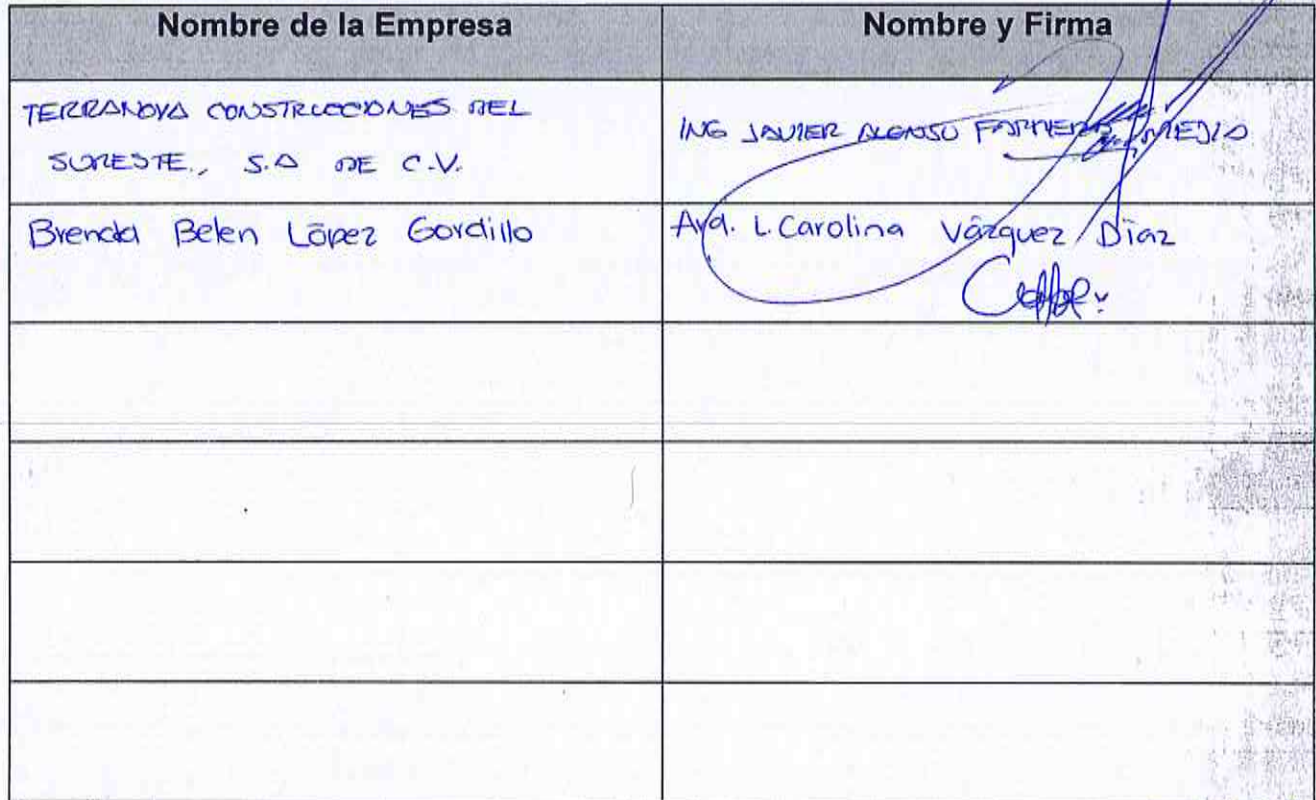 Nombre de la Empresa
Nombre y Firma
TERRANOVA CONSTRUCCIONES DEL
SURESTE., S.A DE C.V.
ING JAVIER ALONSO MEJIA
Brenda Belen López Gordillo
L. Carolina Vázquez Díaz